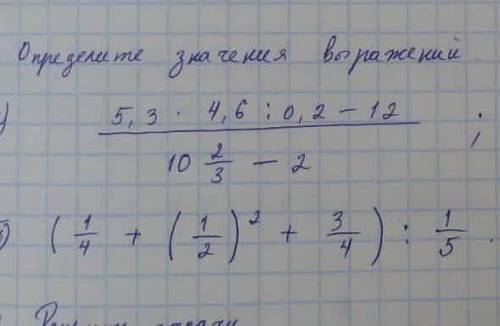 Определите значения выражений
) (5,3 · 4,6 : 0,2 − 12) / (10 2/3 − 2) ;
б) (1/4 + (1/2)² + 3/4) : 1/5 .